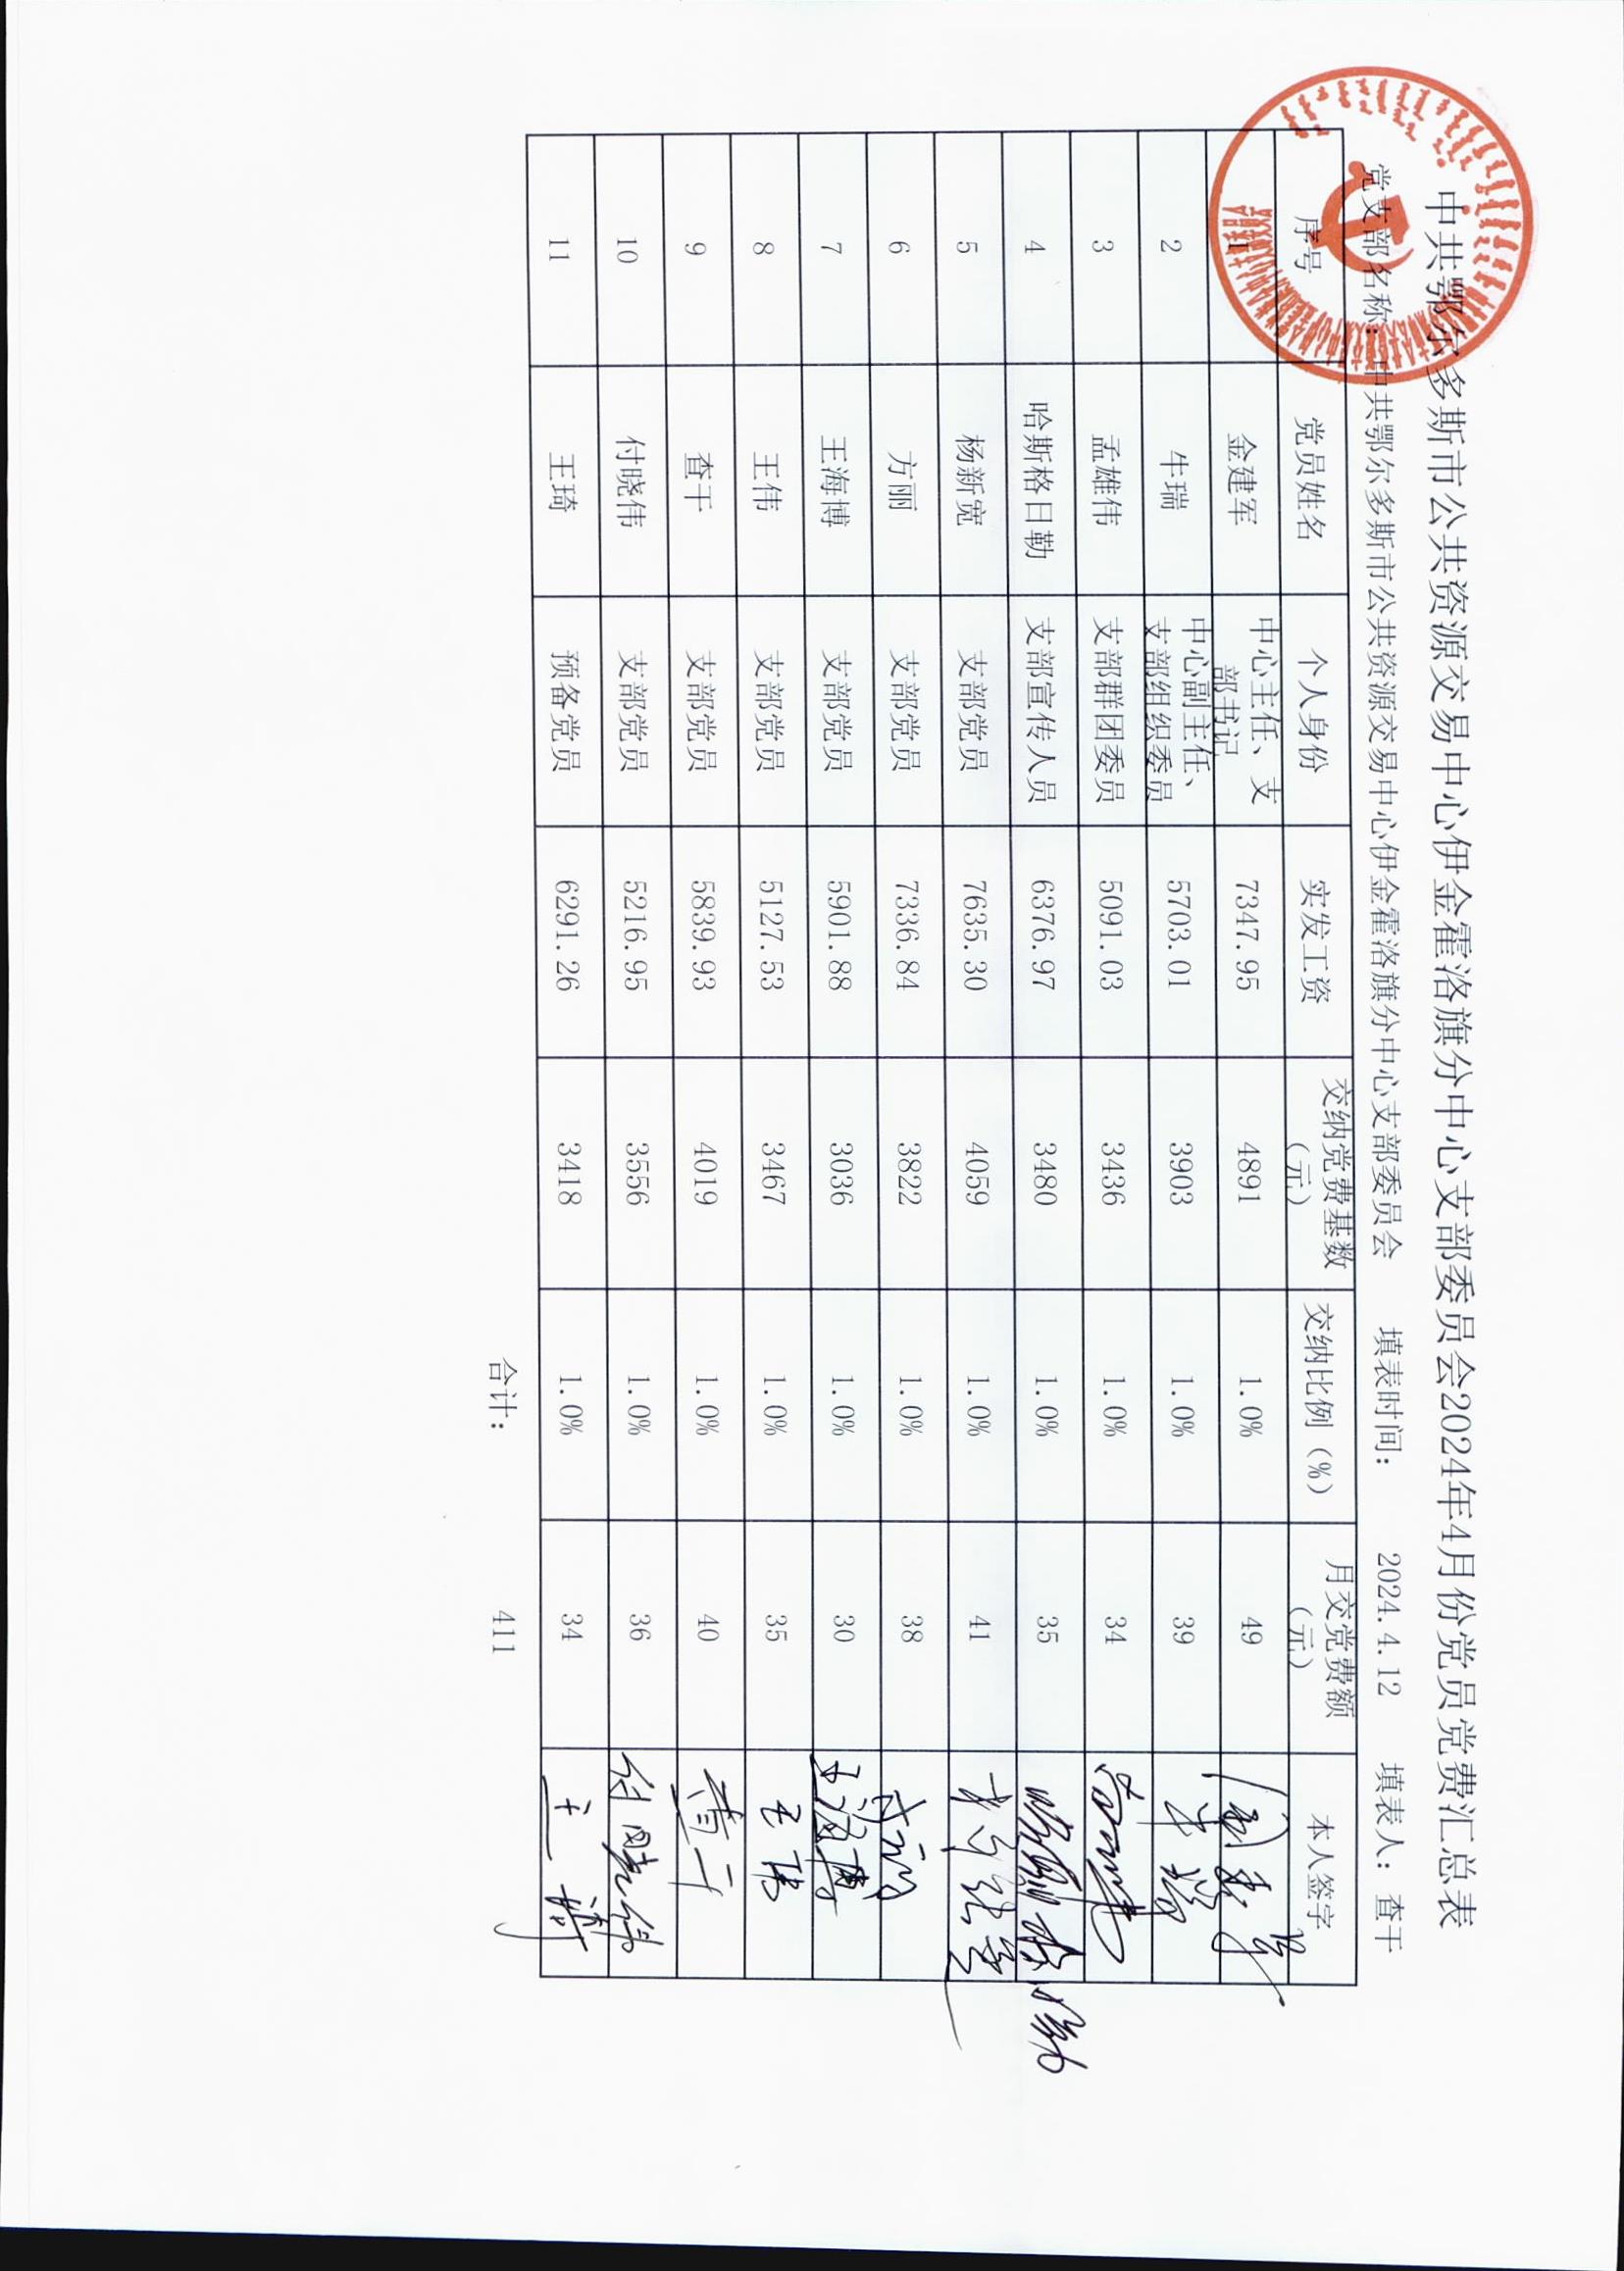 中共鄂尔多斯市公共资源交易中心伊金霍洛旗分中心支部委员会2024年4月份党员党费汇总表
党支部名称：中共鄂尔多斯市公共资源交易中心伊金霍洛旗分中心支部委员会 填表时间： 2024.4.12 填表人：查干
序号 党员姓名 个人身份 实发工资 交纳党费基数（元） 交纳比例（%） 月交党费额（元） 本人签字
1 金建军 中心主任、支部书记 7347.95 4891 1.0% 49
2 牛瑞 中心副主任、支部组织委员 5703.01 3903 1.0% 39 牛瑞
3 孟雄伟 支部群团委员 5091.03 3436 1.0% 34
4 哈斯格日勒 支部宣传人员 6376.97 3480 1.0% 35
5 杨新宽 支部党员 7635.30 4059 1.0% 41
6 方丽 支部党员 7336.84 3822 1.0% 38 方丽
7 王海博 支部党员 5901.88 3036 1.0% 30 王海博
8 王伟 支部党员 5127.53 3467 1.0% 35 王伟
9 查干 支部党员 5839.93 4019 1.0% 40 查干
10 付晓伟 支部党员 5216.95 3556 1.0% 36 付晓伟
11 王琦 预备党员 6291.26 3418 1.0% 34 王琦
合计： 411